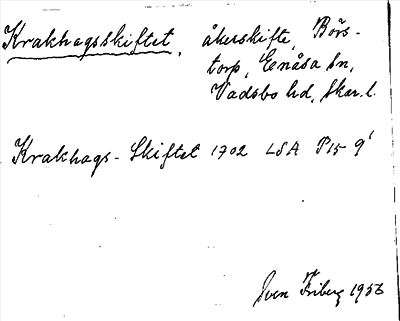 Krakhagsskiftet, åkerskifte, Börs-
torp, Enåsa sn,
Vadsbo hd, Skar. l.
Krakhags-Skiftet 1702 LSA P15-9¹
Sven Friberg 1956